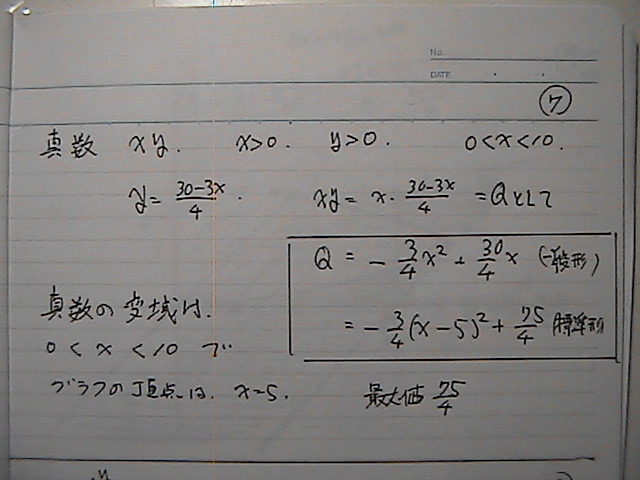 No.
DATE
⑦
真数 xy. x>0. y>0. 0<x<10.
y= (30-3x)/4. xy= x・(30-3x)/4 =Qとして
Q = -3/4x²+30/4x (一般形)
真数の変域は、
= -3/4(x-5)²+75/4 標準形
0<x<10 で
グラフの頂点は、x=5. 最大値 75/4